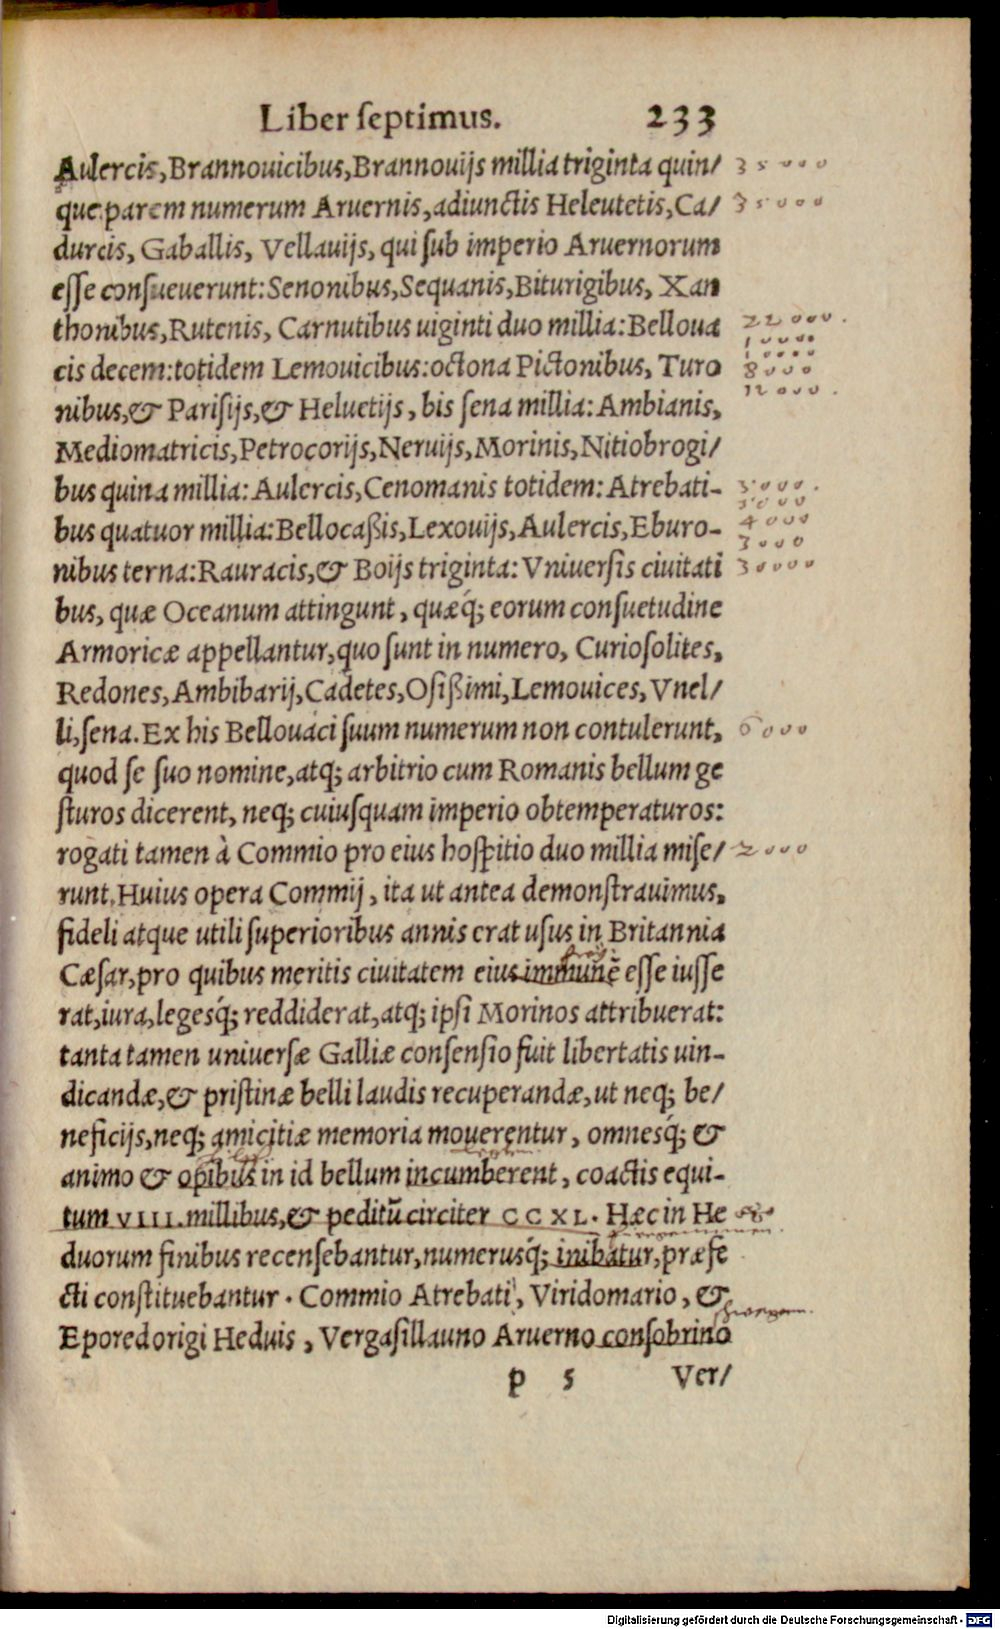 Liber ſeptimus. 233
Aulercis, Brannouicibus, Brannouijs millia triginta quin/ 35000
que: parem numerum Aruernis, adiunctis Heleutetis, Ca/ 35000
durcis, Gaballis, Vellauijs, qui ſub imperio Aruernorum
eſſe conſueuerunt: Senonibus, Sequanis, Biturigibus, Xan
thonibus, Rutenis, Carnutibus uiginti duo millia: Belloua 22000.
10000
cis decem: totidem Lemouicibus: octona Pictonibus, Turo 10000
8000
nibus, & Pariſijs, & Heluetijs, bis ſena millia: Ambianis, 12000.
Mediomatricis, Petrocorijs, Neruijs, Morinis, Nitiobrogi/
bus quina millia: Aulercis, Cenomanis totidem: Atrebati-
bus quatuor millia: Bellocaßis, Lexouijs, Aulercis, Eburo- 4000
3000
nibus terna: Rauracis, & Boijs triginta: Vniuerſis ciuitati 30000
bus, quæ Oceanum attingunt, quæq́; eorum conſuetudine
Armoricæ appellantur, quo ſunt in numero, Curioſolites,
Redones, Ambibarij, Cadetes, Oſißimi, Lemouices, Vnel/
li, ſena. Ex his Bellouaci ſuum numerum non contulerunt, 6000
quod ſe ſuo nomine, atq; arbitrio cum Romanis bellum ge
ſturos dicerent, neq; cuiuſquam imperio obtemperaturos:
rogati tamen à Commio pro eius hoſpitio duo millia miſe/ 2000
runt. Huius opera Commij, ita ut antea demonſtrauimus,
fideli atque utili ſuperioribus annis erat uſus in Britannia
Cæſar, pro quibus meritis ciuitatem eius immunẽ eſſe iuſſe
rat, iura, legesq́; reddiderat, atq; ipſi Morinos attribuerat:
tanta tamen uniuerſæ Galliæ conſenſio fuit libertatis uin-
dicandæ, & priſtinæ belli laudis recuperandæ, ut neq; be/
neficijs, neq; amicitiæ memoria mouerentur, omnesq́; &
animo & opibus in id bellum incumberent, coactis equi-
tum VIII. millibus, & peditũ circiter CCXL. Hæc in He
duorum finibus recenſebantur, numerusq́; inibatur, præfe
cti conſtituebantur. Commio Atrebati, Viridomario, &
Eporedorigi Heduis, Vergaſillauno Aruerno conſobrino
p 5 Ver/
Digitalisierung gefördert durch die Deutsche Forschungsgemeinschaft - DFG